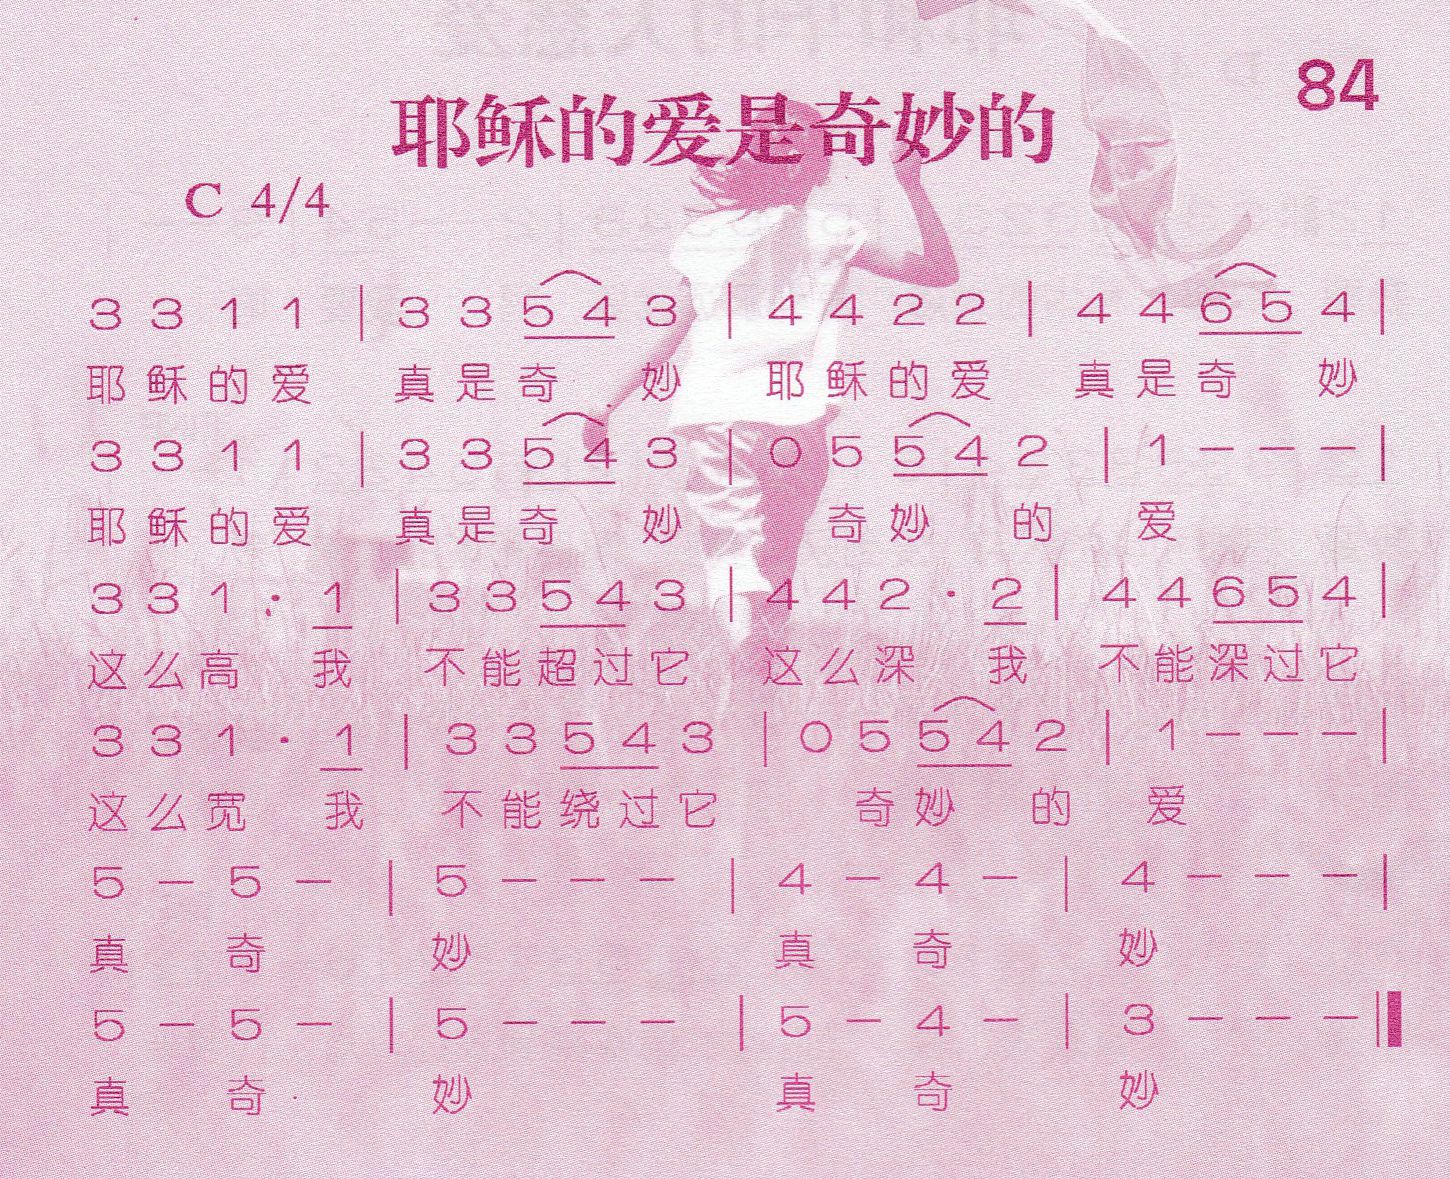 84
耶稣的爱是奇妙的
C 4/4
3 3 1 1 | 3 3 5 4 3 | 4 4 2 2 | 4 4 6 5 4 |
耶稣的爱 真是奇 妙 耶稣的爱 真是奇 妙
3 3 1 1 | 3 3 5 4 3 | 0 5 5 4 2 | 1 — — — |
耶稣的爱 真是奇 妙 奇妙 的 爱
3 3 1 · 1 | 3 3 5 4 3 | 4 4 2 · 2 | 4 4 6 5 4 |
这么高 我 不能超过它 这么深 我 不能深过它
3 3 1 · 1 | 3 3 5 4 3 | 0 5 5 4 2 | 1 — — — |
这么宽 我 不能绕过它 奇妙 的 爱
5 — 5 — | 5 — — — | 4 — 4 — | 4 — — — |
真 奇 妙 真 奇 妙
5 — 5 — | 5 — — — | 5 — 4 — | 3 — — — ‖
真 奇 妙 真 奇 妙